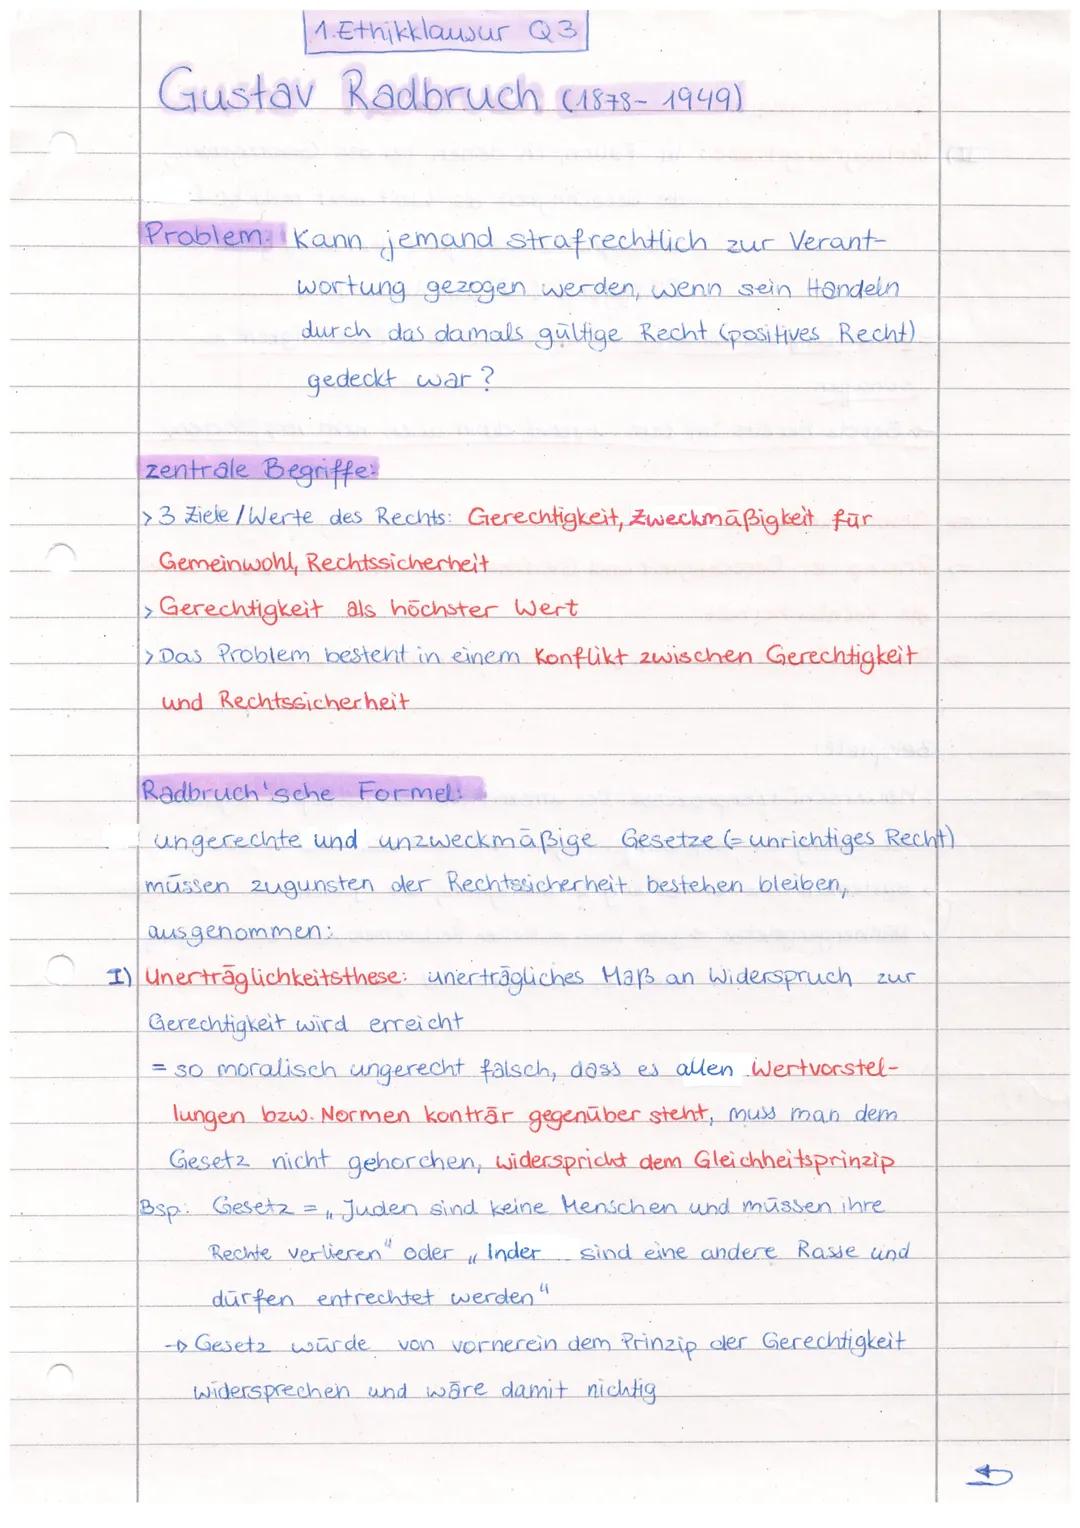 1. Ethikklausur Q3
Gustav Radbruch (1878- 1949)
Problem: Kann jemand strafrechtlich zur Verant-
wortung gezogen werden, wenn sein Handeln
durch das damals gültige Recht (positives Recht)
gedeckt war?
zentrale Begriffe:
> 3 Ziele/Werte des Rechts: Gerechtigkeit, Zweckmäßigkeit für
Gemeinwohl, Rechtssicherheit
> Gerechtigkeit als höchster Wert
> Das Problem besteht in einem Konflikt zwischen Gerechtigkeit
und Rechtssicherheit
Radbruch'sche Formel:
ungerechte und unzweckmäßige Gesetze (= unrichtiges Recht)
müssen zugunsten der Rechtssicherheit bestehen bleiben,
ausgenommen:
I) Unerträglichkeitsthese: unerträgliches Maß an Widerspruch zur
Gerechtigkeit wird erreicht
= so moralisch ungerecht falsch, dass es allen Wertvorstel-
lungen bzw. Normen konträr gegenüber steht, muss man dem
Gesetz nicht gehorchen, widerspricht dem Gleichheitsprinzip
Bsp.: Gesetz = „Juden sind keine Menschen und müssen ihre
Rechte verlieren" oder „Inder sind eine andere Rasse und
dürfen entrechtet werden"
→ Gesetz würde von vornerein dem Prinzip der Gerechtigkeit
widersprechen und wäre damit nichtig